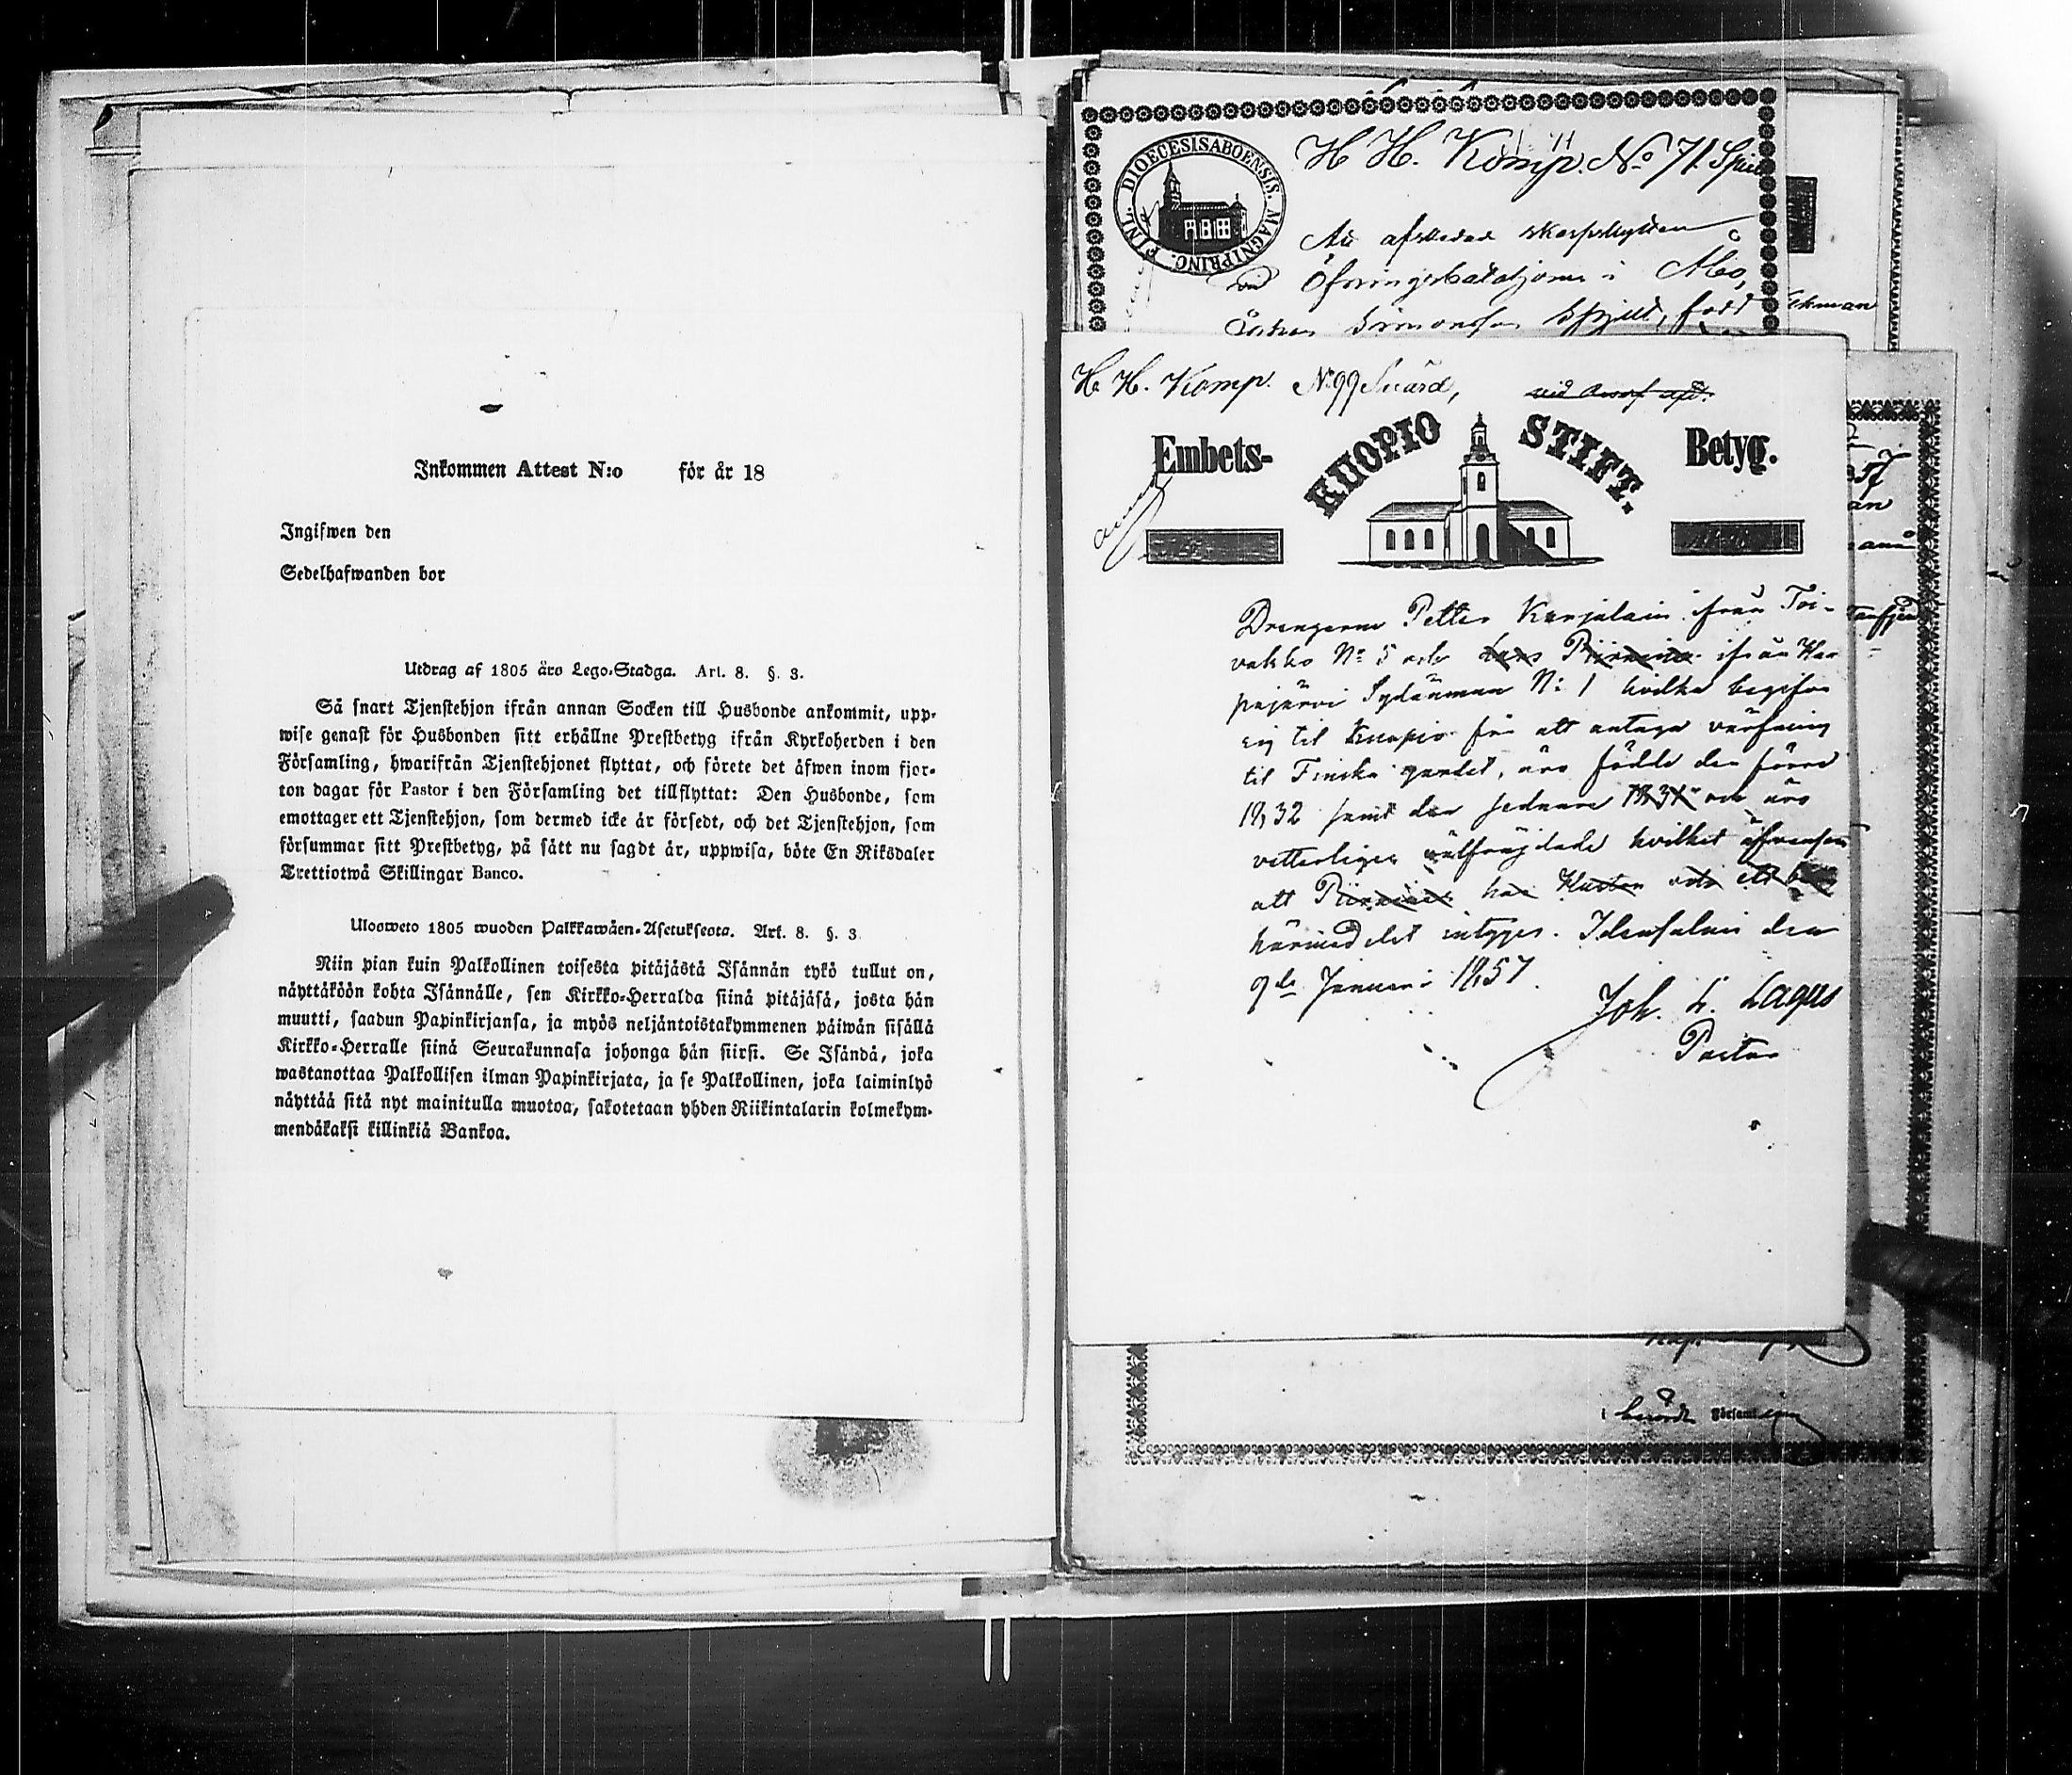 Inkommen Attest N:o för år 18
Ingifwen den
Sedelhafwanden bor
Utdrag af 1805 års Lego-Stadga. Art. 8. §. 3.
Så snart Tjenstehjon ifrån annan Socken till Husbonde ankommit, upp-
wise genast för Husbonden sitt erhållne Prestbetyg ifrån Kyrkoherden i den
Församling, hwarifrån Tjenstehjonet flyttat, och förete det äfwen inom fjor-
ton dagar för Pastor i den Församling det tillflyttat: Den Husbonde, som
emottager ett Tjenstehjon, som dermed icke är försedt, och det Tjenstehjon, som
försummar sitt Prestbetyg, på sätt nu sagdt är, uppwisa, böte En Riksdaler
Trettiotwå Skillingar Banco.
Ulosweto 1805 wuoden Palkkawäen-Asetuksesta. Art. 8. §. 3
Niin pian kuin Palkollinen toisesta pitäjästä Isännän tykö tullut on,
näyttäköön kohta Isännälle, sen Kirkko-Herralda siinä pitäjäsä, josta hän
muutti, saadun Papinkirjansa, ja myös neljäntoistakymmenen päiwän sisällä
Kirkko-Herralle siinä Seurakunnasa johonga hän siirsi. Se Isändä, joka
wastanottaa Palkollisen ilman Papinkirjata, ja se Palkollinen, joka laiminlyö
näyttää sitä nyt mainitulla muotoa, sakotetaan yhden Riikintalarin kolmekym-
mendäkaksi killinkiä Bankoa.
DIOECESIS ABOENSIS. MAGNI PRINC. FINL.
H H. Komp. No 71.
afskedad skarpskytten
Öfningsbataljonen i Åbo,
Simonsson född
ekman
H. H. Komp. No 99 Svärd,
Embets- KUOPIO STIFT. Betyg.
Drengarne Petter Karjalain ifrån Toi-
vakko No 5 och Lars Piironen ifrån Kar
pajärvi Sydänmaa No 1 hvilka begifva
sig til Kuopio för att antaga värfning
til Finska gardet, äro födde den förre
1832 samt den sednare 1831 och äro
vetterligen välfrägdade hvilket äfvensom
att Piironen har Hustru och ett
härmedelst intygas. Idensalmi den
9de Januari 1857.
Joh. L. Lagus
Pastor
57
i Församling